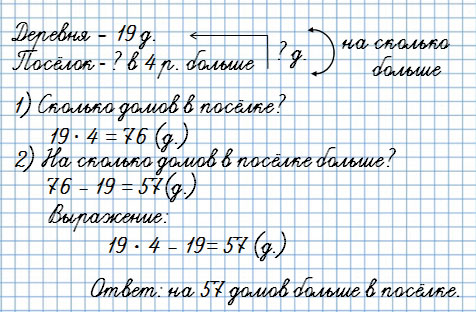 Деревня - 19 д.
Посёлок - ? в 4 р. больше
? д.
на сколько
больше
1) Сколько домов в посёлке?
19 · 4 = 76 (д.)
2) На сколько домов в посёлке больше?
76 - 19 = 57 (д.)
Выражение:
19 · 4 - 19 = 57 (д.)
Ответ: на 57 домов больше в посёлке.